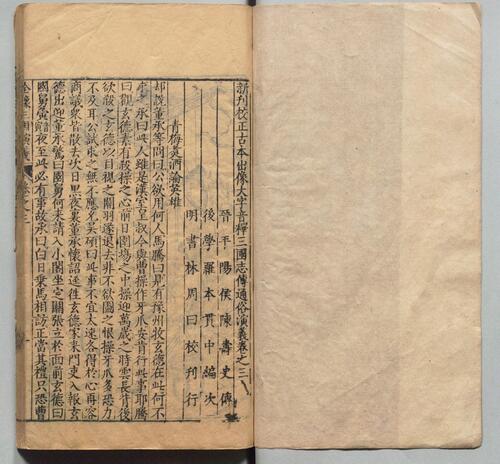 新刊校正古本出像大字音釋三國志傳通俗演義卷之三
晉平陽侯陳壽史傳
後學羅本貫中編次
明書林周曰校刊行
青梅煮酒論英雄
却說董承等問曰公欲用何人馬騰曰見有豫州牧玄德在此何不
求之承曰此人雖是漢室皇叔今與曹操作牙爪安肯行此事耶騰
曰觀玄德素有殺操之心前日圍場之中操迎萬歲之時雲長背後
欲殺之玄德以目視之關羽遂退去非不欲圖之恨操牙爪多恐力
不及耳公試求之無不應允吳碩曰此事不宜太速各得於心再容
商議衆皆散去次日黑夜裏董承懷詔逕往玄德家來門吏入報玄
德出迎董承驚曰國舅何來請入小閣坐定關張立於面前玄德曰
國舅夤夜至此必有事故承曰白日乘馬相訪正當其禮只恐曹
全像三國演義 卷之三